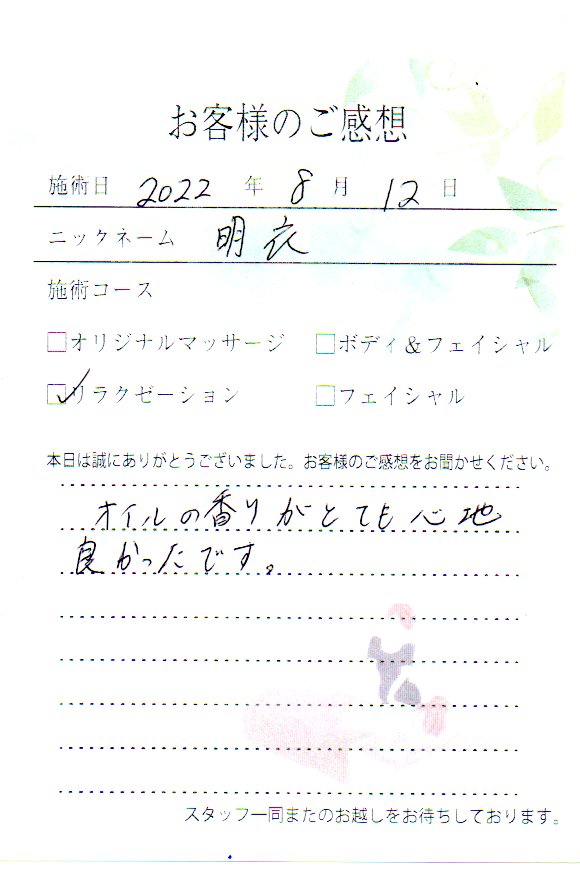 お客様のご感想
施術日 2022 年 8 月 12 日
ニックネーム 明衣
施術コース
□オリジナルマッサージ □ボディ＆フェイシャル
☑リラクゼーション □フェイシャル
本日は誠にありがとうございました。お客様のご感想をお聞かせください。
オイルの香りがとても心地
良かったです。
スタッフ一同またのお越しをお待ちしております。